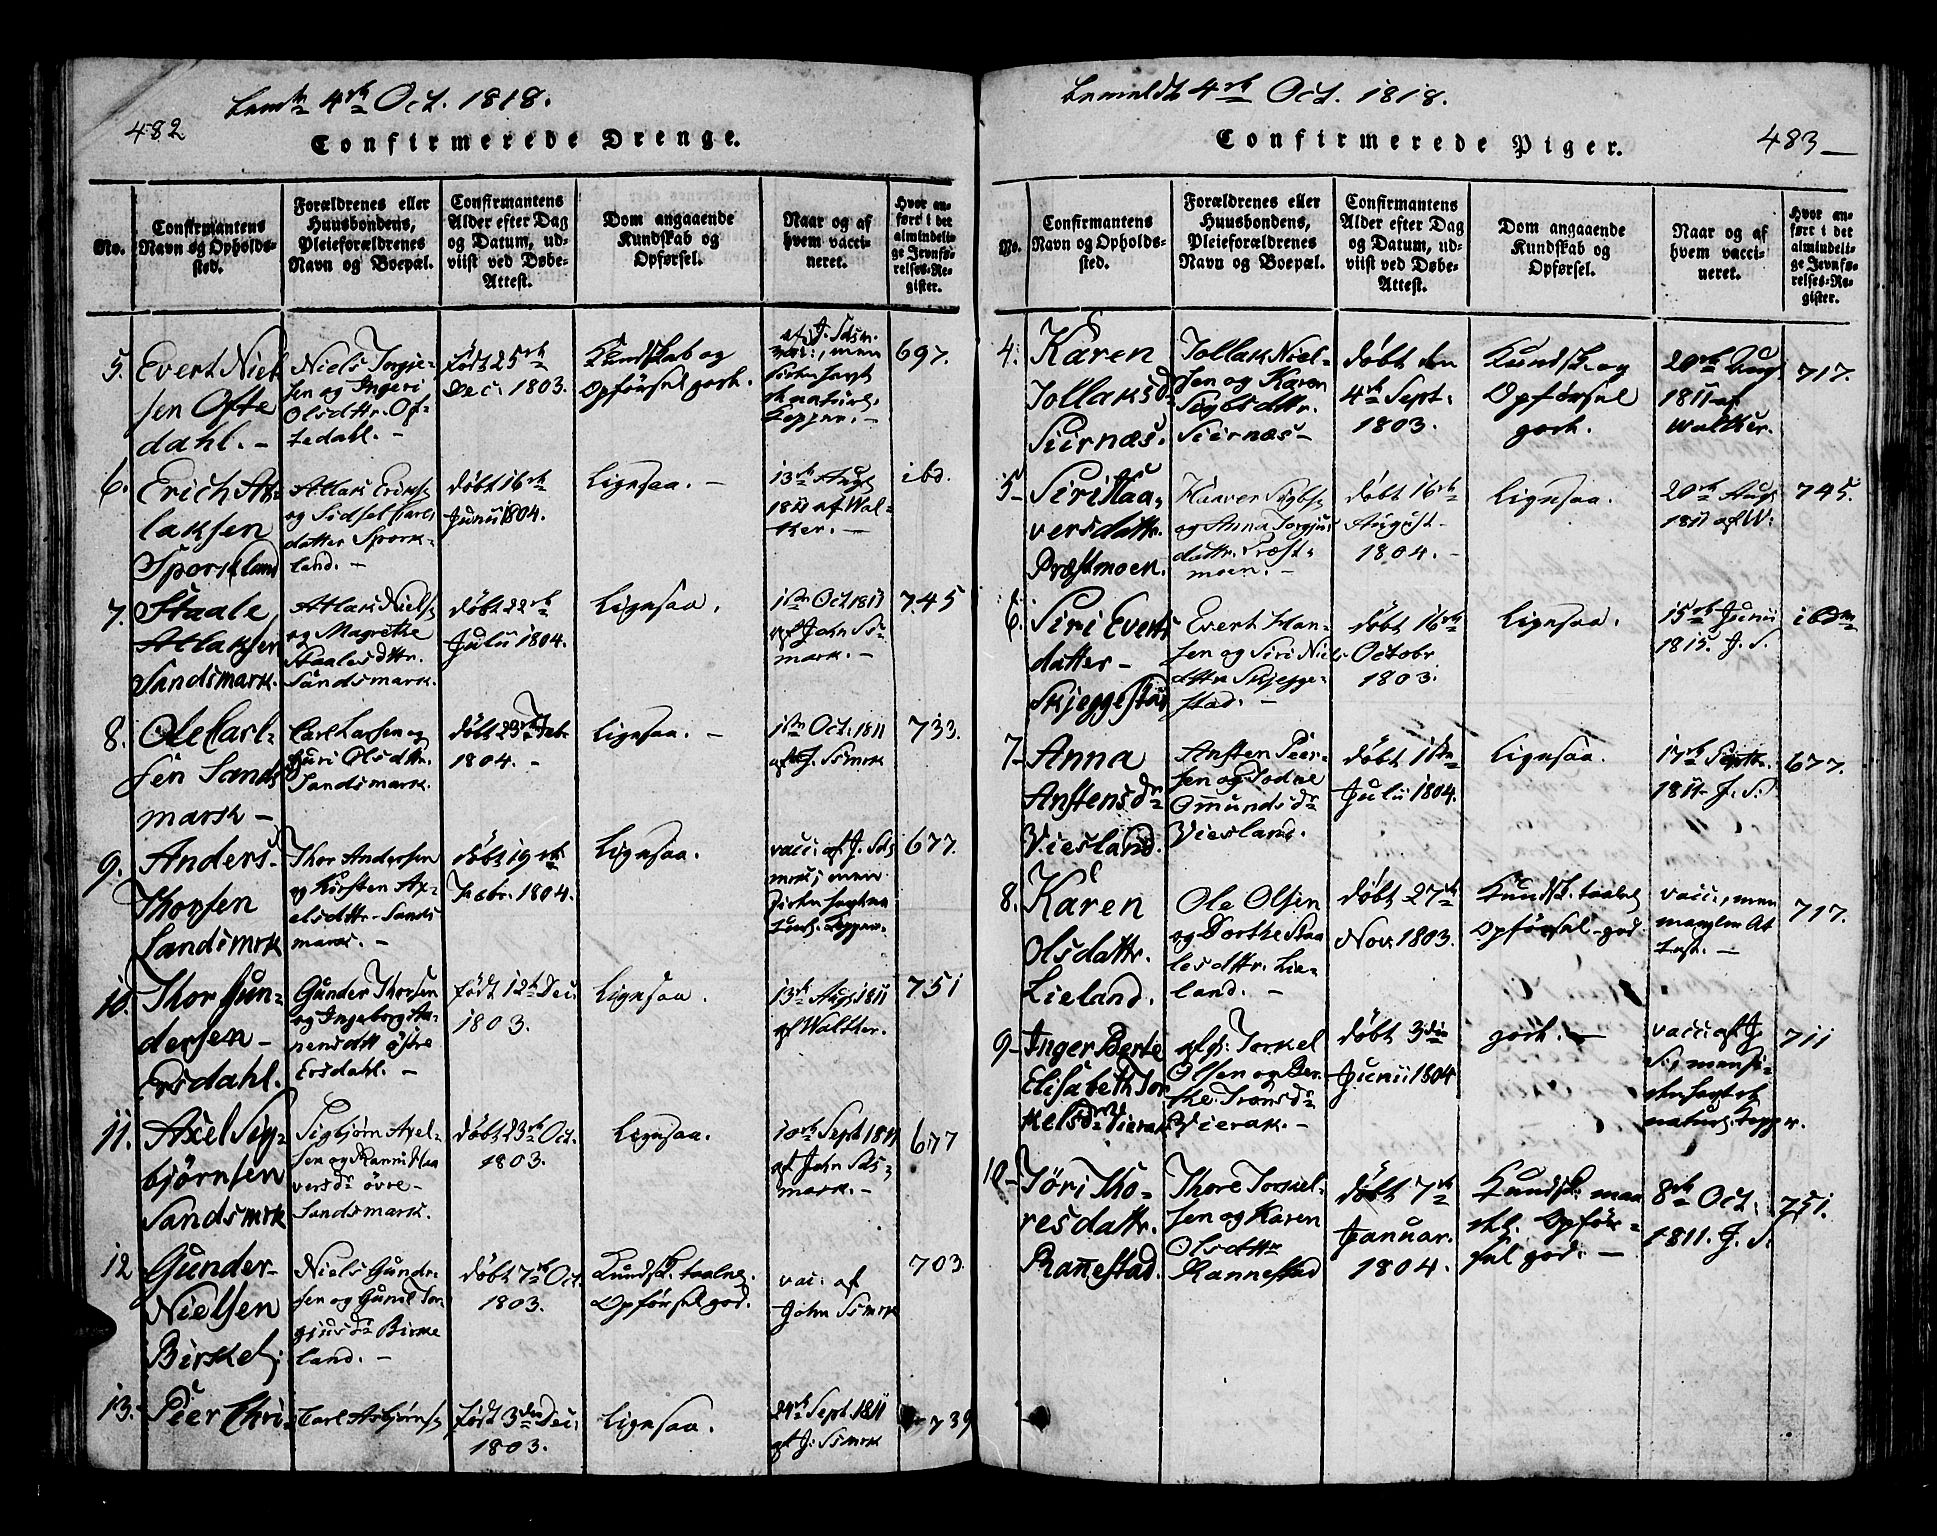 4de Oct. 1818.
482
Confirmerede Drenge.
No.
Confirmantens
Navn og Opholds-
sted.
Forældrenes eller
Huusbondens,
Pleieforældrenes
Navn og Boepæl.
Confirmantens
Alder efter Dag
og Datum, ud-
viist ved Døbe-
Attest.
Dom angaaende
Kundskab og
Opførsel.
Naar og af
hvem vacci-
neret.
Hvor an-
ført i det
almindeli-
ge Jevnfø-
relses-Re-
gister.
5.
Evert Niel-
sen Ofte
dahl. -
Niels Torgje-
sen og Ingeri
Olsdttr. Of-
tedahl. -
født 25de
Dec: 1803.
Kundskab og
Opførsel godt.
697.
6.
Erich At-
laksen
Sporkland
Atlak Eriks.
og Sidsel Carls
datter Spork-
land. -
døbt 16de
Junii 1804.
Lignsaa. -
13de Aug.
1811 af Wal-
ker. -
ibd.
7.
Staale
Atlaksen
Sandsmark.
Atlak Niels.
og Magrethe
Staalesdttr.
Sandsmark.
døbt 22de
Julii 1804.
Lignsaa.
1ste Oct 1811
af John Ss-
mark. -
745
8.
Ole Carl-
sen Sands
mark -
Carl Larsen og
Guri Olsdttr.
Sandsmark.
døbt 23de Febr.
1804. -
Lignsaa. -
1ste Oct. 1811
af J. Ssmrk
733.
9.
Anders
Thorsen
Sandsmrk
Thor Andersen
og Kirsten Ax-
elsdttr. Sands
mark. -
døbt 19de
Febr. 1804.
Lignsaa.
677.
10.
Thor Gun-
dersen -
Ersdahl.
Gunder Thorsen
og Ingeborg Ha-
nensdtt østre
Ersdahl. -
født 12te Dec
1803.
Lignsaa.
13de Aug 1811
af Walker.
751
11.
Axel Sig-
bjørnsen
Sandsmrk
Sigbjørn Axel-
sen og Ranni Haa
versdr øvre -
Sandsmark.
døbt 23de Oct.
1803.
Lignsaa.
10de Sept 1811
af John Sds-
mark. -
677
12
Gunder
Nielsen
Birkel:
Niels Gunder-
sen og Gunil Tor
gjusdr Birke
land. -
døbt 7de Oct.
1803.
Kundsk. taalel.
Opførsel god.
vac: af
John Ssmrk
703
13.
Peer Chri-
Carl Asbjørns.
født 3die Dec.
1803.
Lignsaa.
24de Sept. 1811
af J. Ssmrk
739
4de Oct. 1818.
483 -
Confirmerede Piger.
No.
Confirmantens
Navn og Opholds-
sted.
Forældrenes eller
Huusbondens,
Pleieforældrenes
Navn og Boepæl.
Confirmantens
Alder efter Dag
og Datum, ud-
viist ved Døbe-
Attest.
Dom angaaende
Kundskab og
Opførsel.
Naar og af
hvem vacci-
neret.
Hvor an-
ført i det
almindeli-
ge Jevnfø-
relses-Re-
gister.
4.
Karen
Tollaksd.
Siirnæs.
Tollak Niel-
sen og Karen
Sigbsdttr.
Siirnæs -
døbt den
4de Sept:
1803.
Kundsk. og
Opførsel
godt.
20de Aug
1811 af
Walker.
717.
5 -
Siri Haa-
versdattr.
Præstmoen.
Haaver Sigbs.
og Anna Torgjus
dattr. Præst-
moen. -
døbt 16de
August
1804. -
Lignsaa.
20de Aug
1811 af W:
745.
6.
Siri Everts
datter -
Skjeggestad
Evert Han-
sen og Siri Niels
dttr Skjegge-
stad. -
døbt 16de
Octobr
1803.
Lignsaa.
15de Junii
1815. J. S.
ibdm
7 -
Anna
Anstensdr
Viesland.
Ansten Peer-
sen og Todne
Omundsdr
Viesland.
døbt 1ste
Julii 1804.
Lignsaa.
17de Septbr.
1811 J. S.
677.
8.
Karen
Olsdattr.
Lieland.
Ole Olsen
og Dorthe Staa
lesdttr. Lie-
land. -
døbt 27de
Nov. 1803.
Kundsk. taalel
Opførsel god.
vacc:, men
mangler At
test. -
717.
9 -
Inger Berte
Elisabeth Tor
kelsdr Vierak
afg: Torkel
Olsen og Ber
the Tronsdr
Vierak. -
døbt 3die
Junii 1804
godt. -
711
10 -
Tøri Tho-
resdattr.
Rannestad.
Thore Torkel-
sen og Karen
Olsdttr
Rannestad
døbt 7de
Januar.
1804.
Kundsk: maa
skl. Opfør-
sel god. -
8de Oct.
1811. J. S.
751.